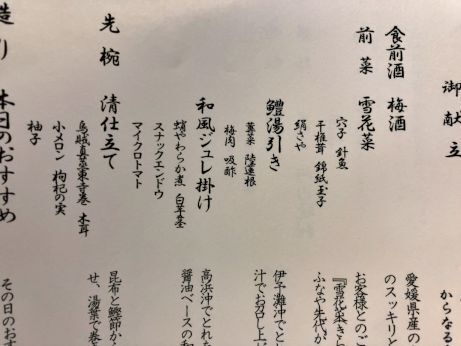 御献立
食前酒 梅酒
前菜 雪花菜
穴子 針魚
干椎茸 錦紙玉子
絹さや
鱧湯引き
蓴菜 陸蓮根
梅肉 吸酢
和風ジュレ掛け
蛸やわらか煮 白芋茎
スナックエンドウ
マイクロトマト
先椀 清仕立て
烏賊真薯東寺巻 木耳
小メロン 枸杞の実
柚子
造り 本日のおすすめ
からなる
愛媛県産の
のスッキリと
お客様とのご
『雪花菜きら
ふなや先代が
伊予灘沖でと
汁でお召し上が
高浜沖でとれた
醤油ベースの和
昆布と鰹節か
せ、湯葉で巻
その日のおす